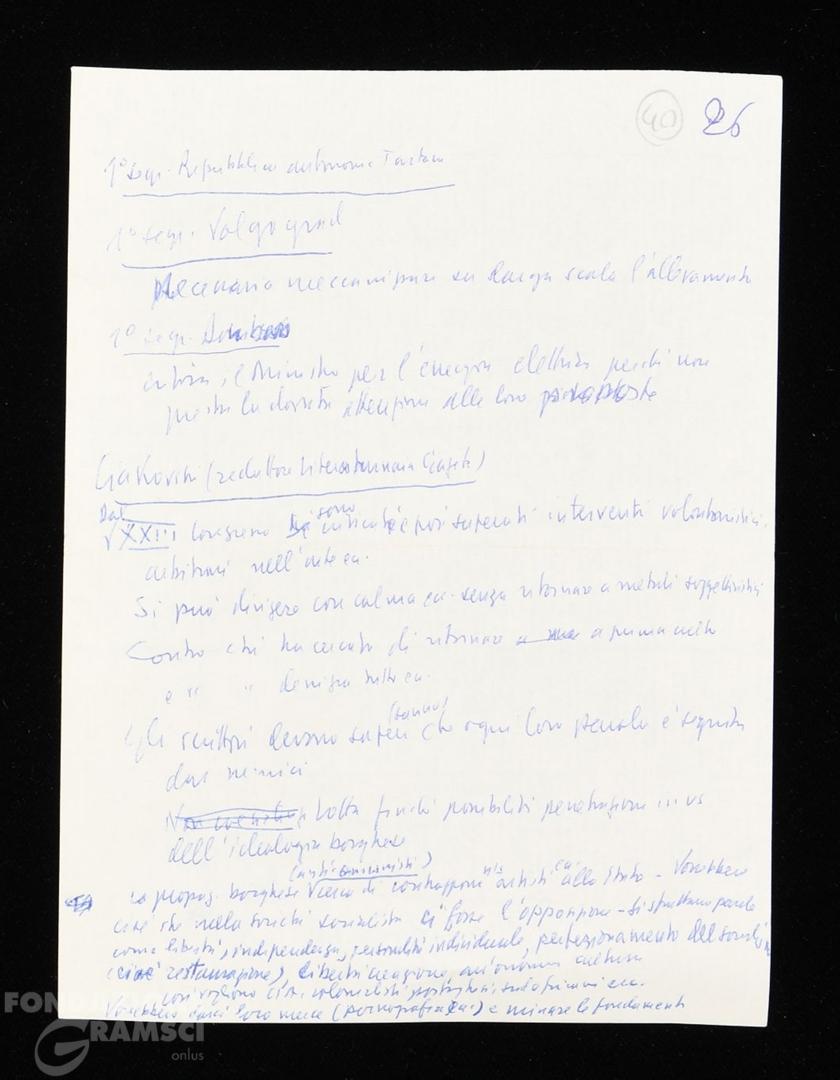 40 26
1° segr. Repubblica autonoma Tartara
1° segr. Volgograd
Necessario meccanizzare su larga scala l'allevamento
1° segr.
critica il Ministro per l'energia elettrica perché non
presta la dovuta attenzione alle loro proposte
Ciakovski (redattore Literaturnaia Gazeta)
Dal
XXIII Congresso sono criticati e poi superati interventi volontaristici,
arbitrari nell'arte ecc.
Si può dirigere con calma ecc. senza ritornare a metodi soggettivistici
Contro chi ha cercato di ritornare a a prima
e " " denigra tutto ecc.
Gli scrittori devono sapere (sanno) che ogni loro parola è seguita
dai nemici
lotta finché possibilità penetrazione in us
dell'ideologia borghese
(anti-comunisti)
La propag. borghese cerca di contrapporre gli artisti ecc. allo Stato - Vorrebbero
cioè che nella società socialista ci fosse l'opposizione - si sfruttano parole
come libertà, independenza, personalità individuale, perfezionamento del social.
(cioè restaurazione), libertà creazione, autonomia cultura
così vogliono colonialisti
Vorrebbero darci loro merce (pornografia ecc.) e minare le fondamenta
FONDAZIONE
GRAMSCI
onlus